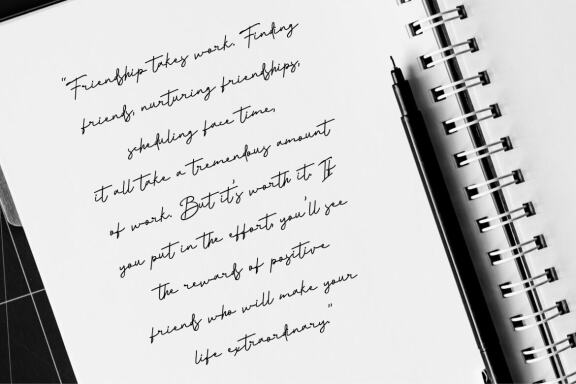 "Friendship takes work. Finding
friends, nurturing friendships,
scheduling face time,
it all take a tremendous amount
of work. But it's worth it. If
you put in the effort, you'll see
the rewards of positive
friends who will make your
life extraordinary."